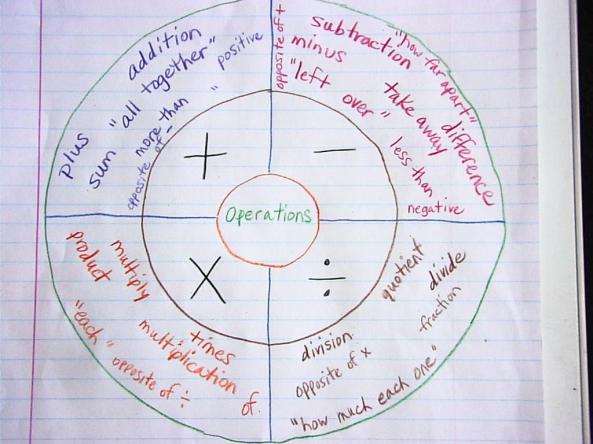 Operations
+
−
×
÷
addition
"all together"
positive
plus
sum
more than
opposite of −
opposite of +
subtraction
minus
"how far apart"
"left over"
take away
difference
less than
negative
product
multiply
"each"
times
multiplication
opposite of ÷
of
quotient
divide
fraction
division
opposite of x
"how much each one"